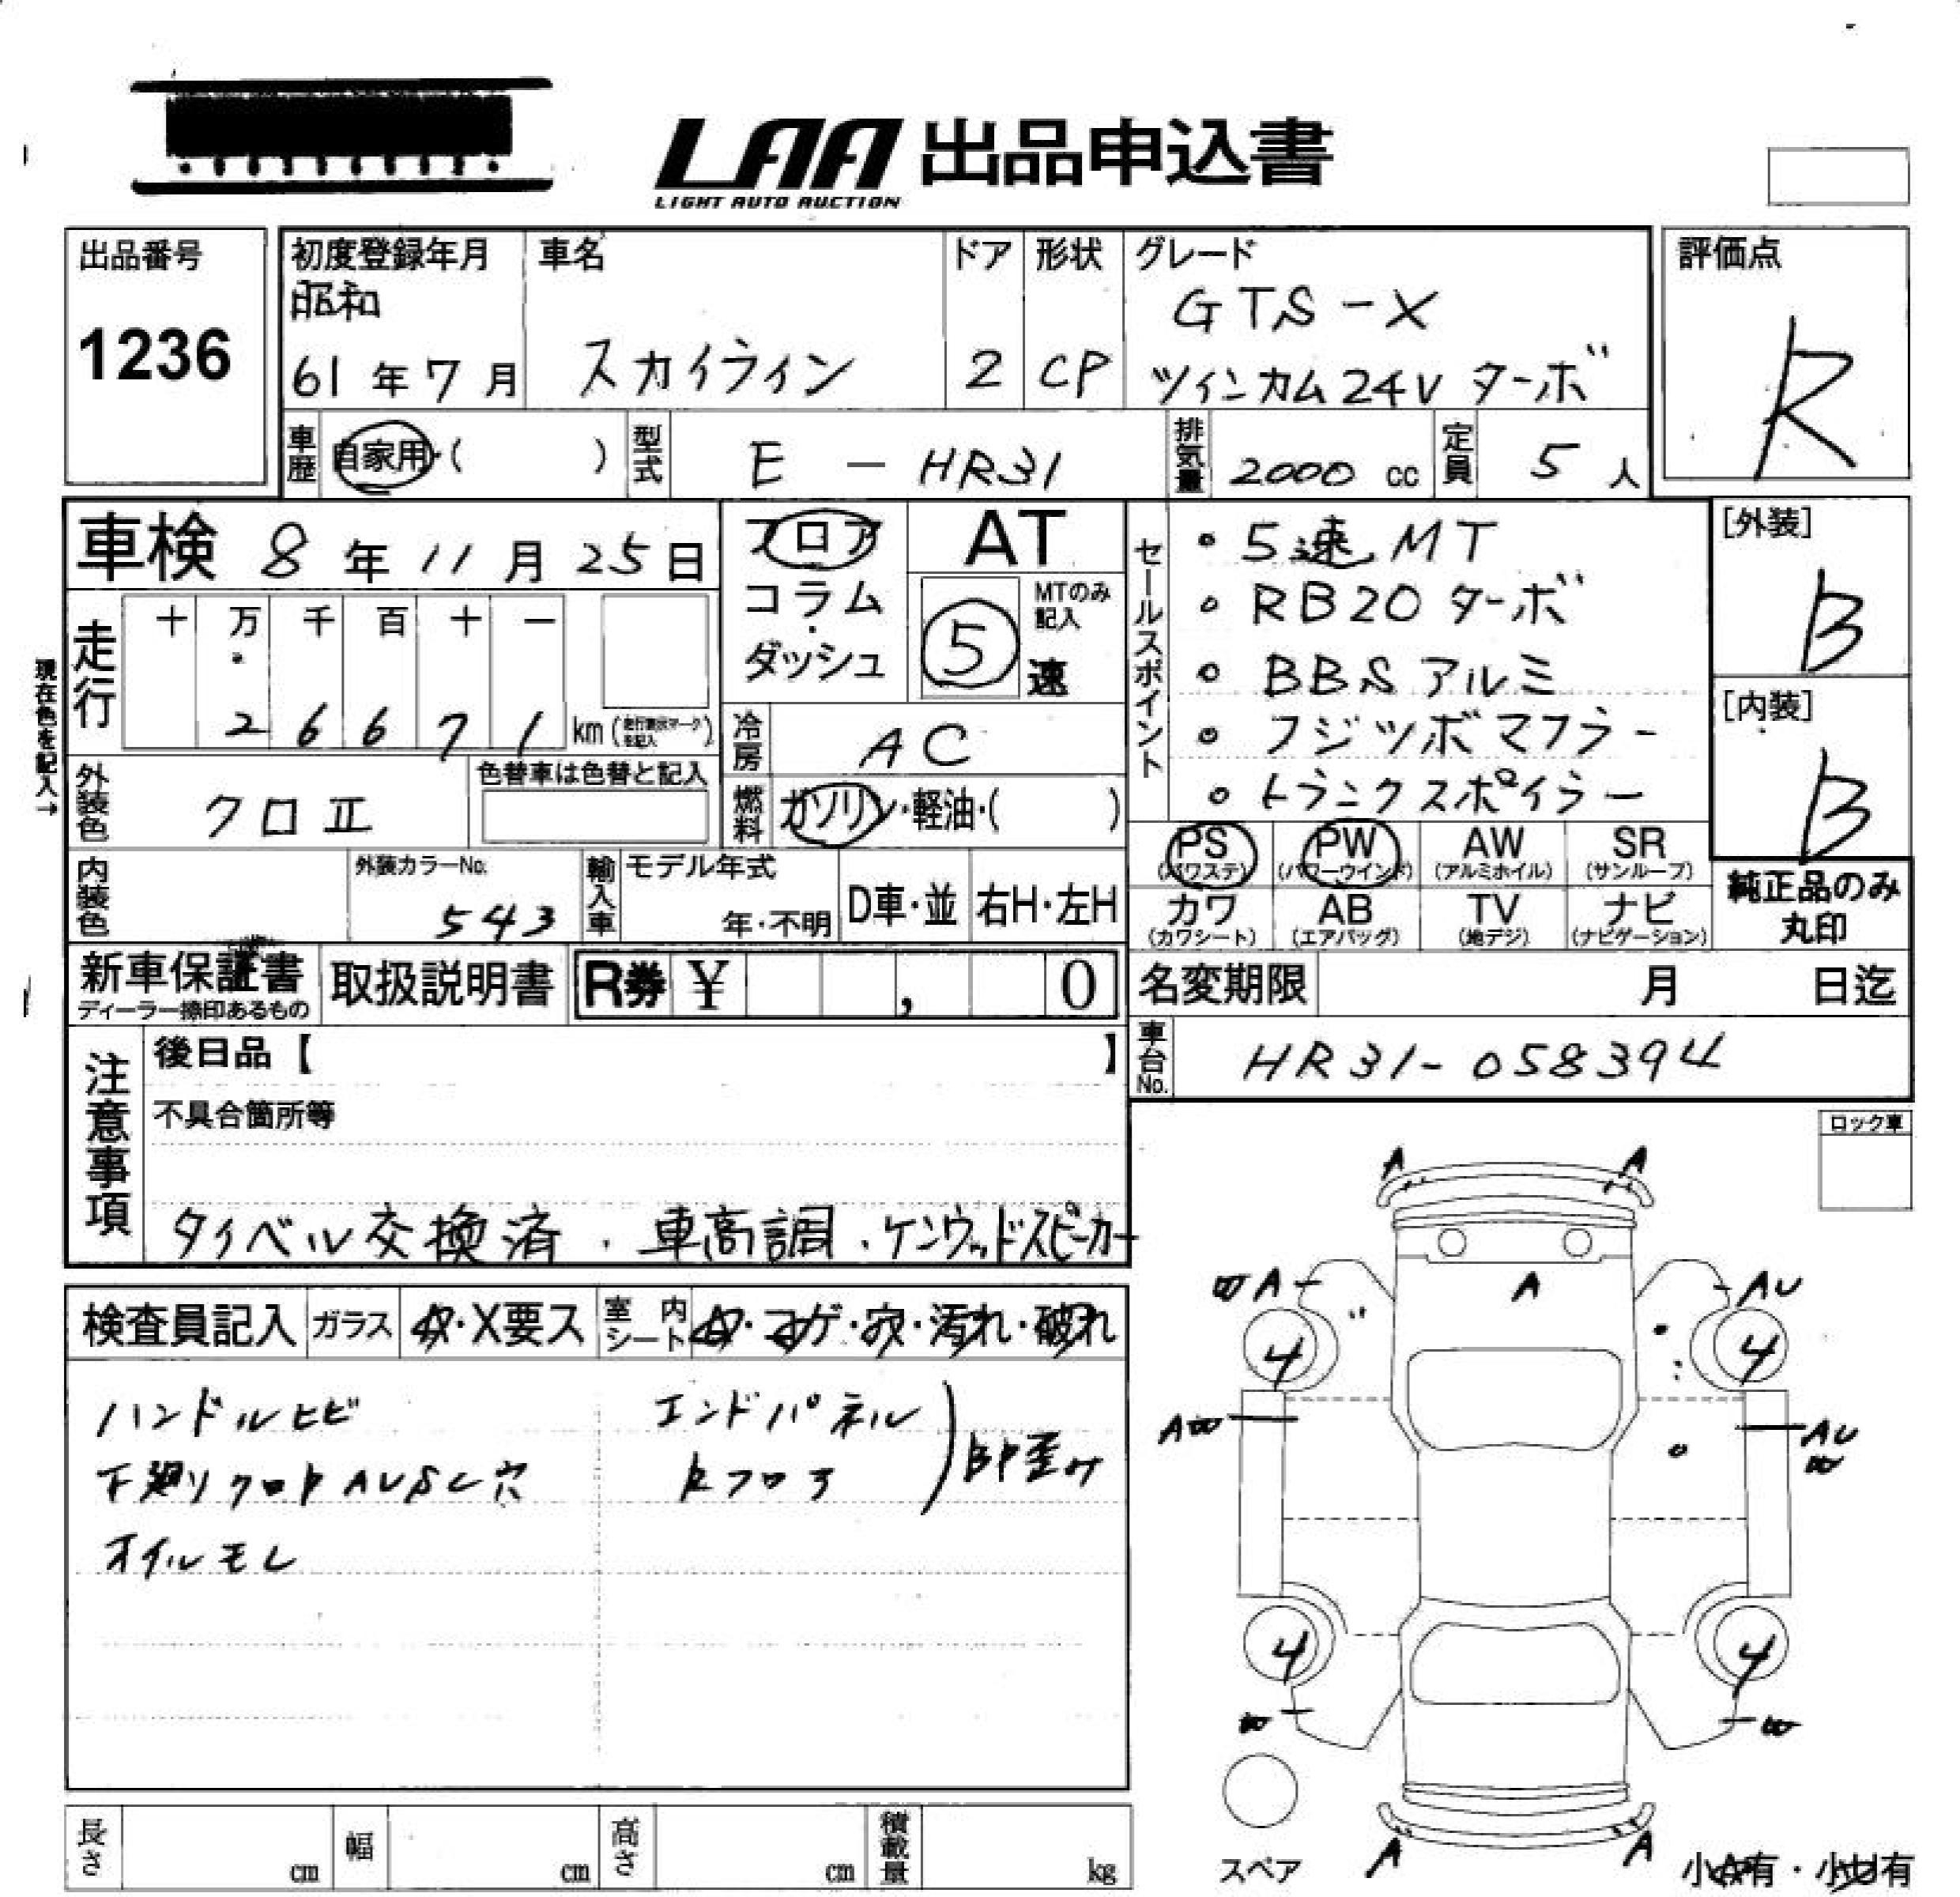 LAA 出品申込書
LIGHT AUTO AUCTION
出品番号
1236
初度登録年月
昭和
61年7月
車名
スカイライン
ドア
2
形状
CP
グレード
GTS-X
ツインカム24V ターボ
評価点
R
車歴
自家用・( )
型式
E - HR31
排気量
2000 cc
定員
5人
車検 8年11月25日
フロア
コラム
・
ダッシュ
AT
MTのみ
記入
5
速
セールスポイント
・5速MT
・RB20 ターボ
・BBSアルミ
・フジツボマフラー
・トランクスポイラー
[外装]
B
[内装]
B
現在色を記入→
走行
十 万 千 百 十 一
2 6 6 7 1
km
冷房
AC
外装色
クロⅡ
色替車は色替と記入
燃料
ガソリン・軽油・( )
PS
(パワステ)
PW
(パワーウインド)
AW
(アルミホイル)
SR
(サンルーフ)
カワ
(カワシート)
AB
(エアバッグ)
TV
(地デジ)
ナビ
(ナビゲーション)
純正品のみ
丸印
内装色
外装カラーNo.
543
輸入車
モデル年式
年・不明
D車・並
右H・左H
新車保証書
ディーラー捺印あるもの
取扱説明書
R券 ¥ , 0
名変期限
月 日迄
車台No.
HR31-058394
注意事項
後日品【 】
不具合箇所等
タイベル交換済・車高調・ケンウッドスピーカー
ロック車
検査員記入
ガラス
・X要ス
室内シート
・コゲ・穴・汚れ・破れ
ハンドルヒビ
下廻りクロ中AUSC穴
オイルモレ
エンドパネル
Rフロア
A A
A
A
AU
4 4
A
AU
4 4
A A
スペア
小A有・小U有
長さ
cm
幅
cm
高さ
cm
積載量
kg